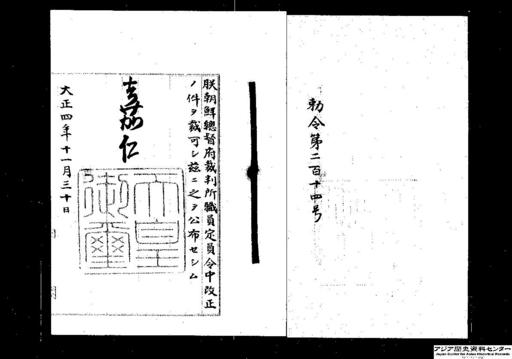 勅令第二百十四号
朕朝鮮總督府裁判所職員定員令中改正
ノ件ヲ裁可シ茲ニ之ヲ公布セシム
嘉仁
天皇御璽
大正四年十一月三十日
アジア歴史資料センター
Japan Center for Asian Historical Records